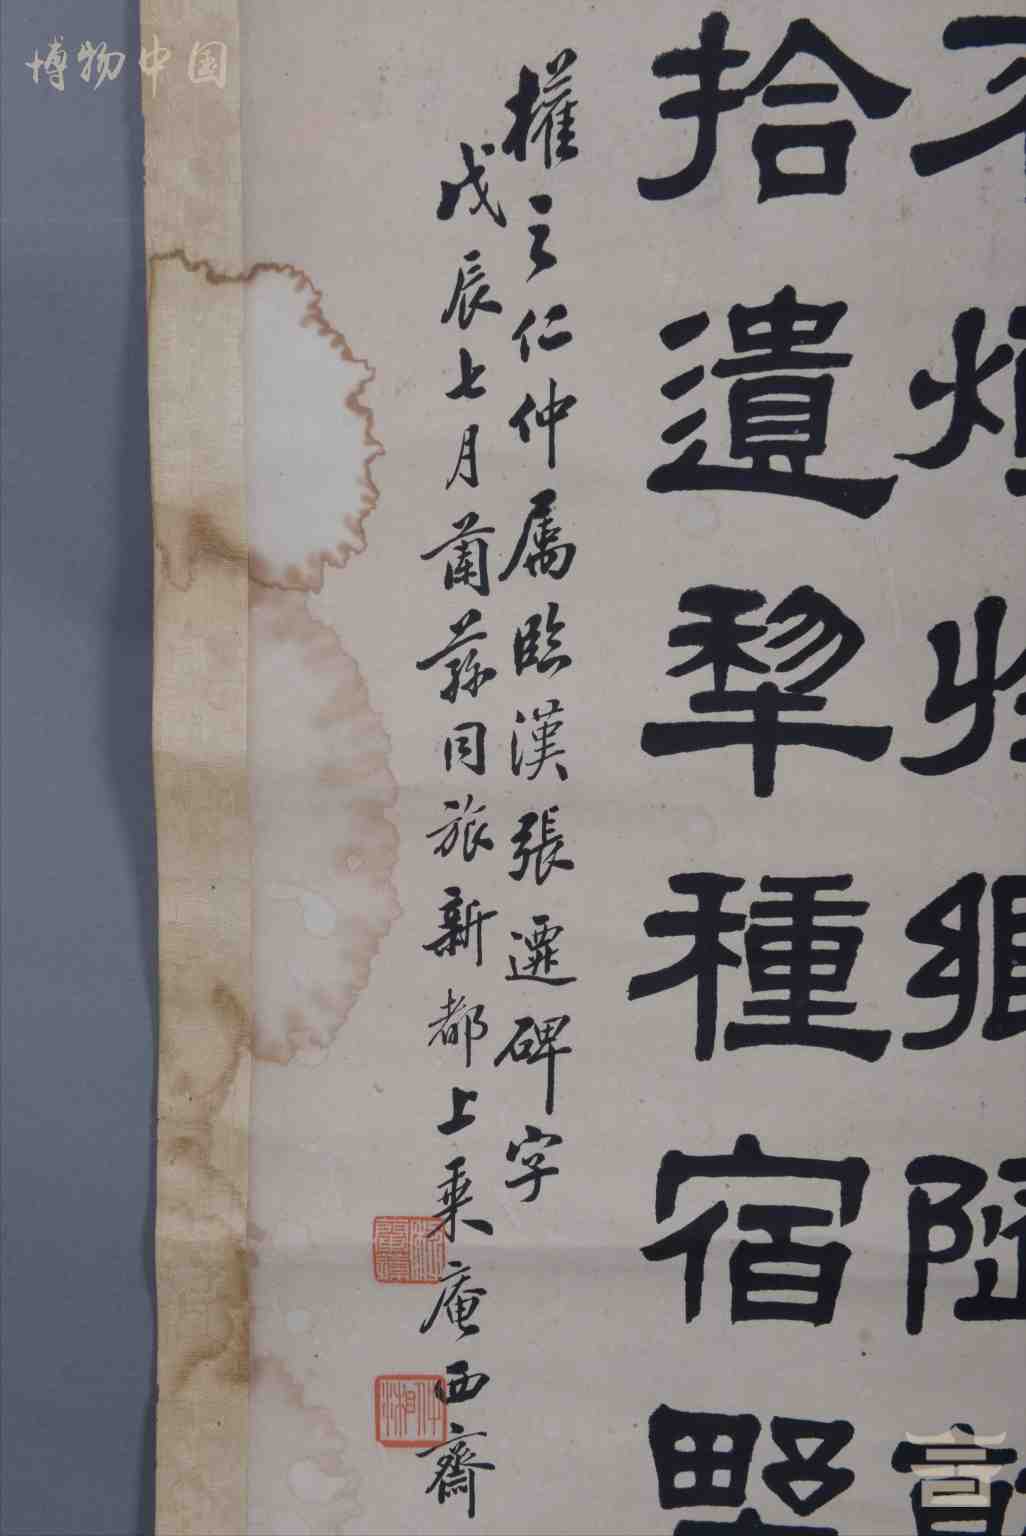 博物中国
不煩鄉
拾遺犂種宿野
權之仁仲屬臨漢張遷碑字
戊辰七月蘭蓀同旅新都上乘庵西齋